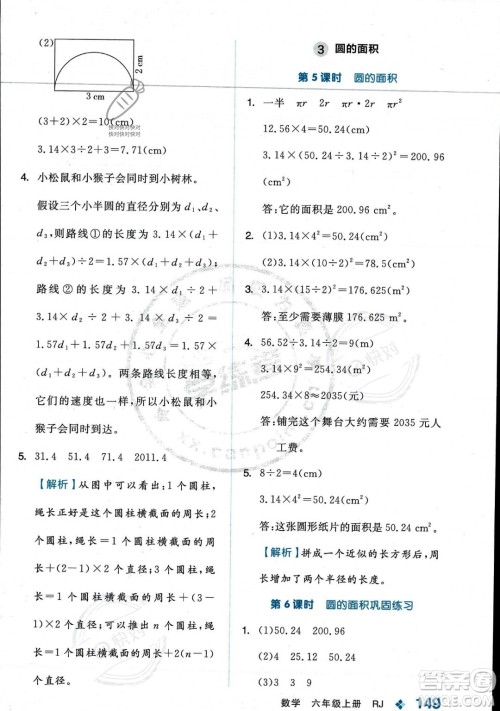 (2)
2 cm
3 cm
(3+2)×2=10(cm)
3.14×3÷2+3=7.71(cm)
4. 小松鼠和小猴子会同时到小树林。
假设三个小半圆的直径分别为 d₁、d₂、
d₃，则路线①的长度为 3.14×(d₁+
d₂+d₃)÷2=1.57×(d₁+d₂+d₃)；
路线②的长度为 3.14×d₁÷2+
3.14×d₂÷2+3.14×d₃÷2=
1.57d₁+1.57d₂+1.57d₃=1.57×
(d₁+d₂+d₃)。两条路线长度相等，
它们的速度相同，所以小松鼠和小
猴子会同时到达。
5. 31.4 51.4 71.4 2011.4
【解析】从图中可以看出：1个圆柱，
绳长正好是这个圆柱横截面的周
长；2个圆柱，绳长=1个圆柱横截面
的周长+2个直径；3个圆柱，绳长=
1个圆柱横截面的周长+(2×2)个
直径……由此可推出：n个圆柱，绳
长=1个圆柱横截面的周长+2×
(n-1)个直径。
3 圆的面积
第5课时 圆的面积
1. 一半 πr 2r πr·r πr²
12.56×4=50.24(cm)
3.14×(50.24÷3.14÷2)²=200.96
(cm²)
答：它的面积是 200.96 cm²。
2. (1)3.14×4²=50.24(cm²)
(2)3.14×(10÷2)²=78.5(cm²)
3.14×(15÷2)²=176.625(m²)
答：至少需要薄膜 176.625 m²。
4. 56.52÷3.14÷2=9(m)
3.14×9²=254.34(m²)
254.34×8≈2035(元)
答：铺完这个舞台大约需要 2035 元人
工费。
5. 8÷2=4(cm)
3.14×4²=50.24(cm²)
答：这张圆形纸片的面积是 50.24 cm²。
【解析】拼成一个近似的长方形后，周
长增加了两个半径。
第6课时 圆的面积巩固练习
1. (1)50.24 200.96
(2)3 3 9
数学 六年级上册 RJ 149